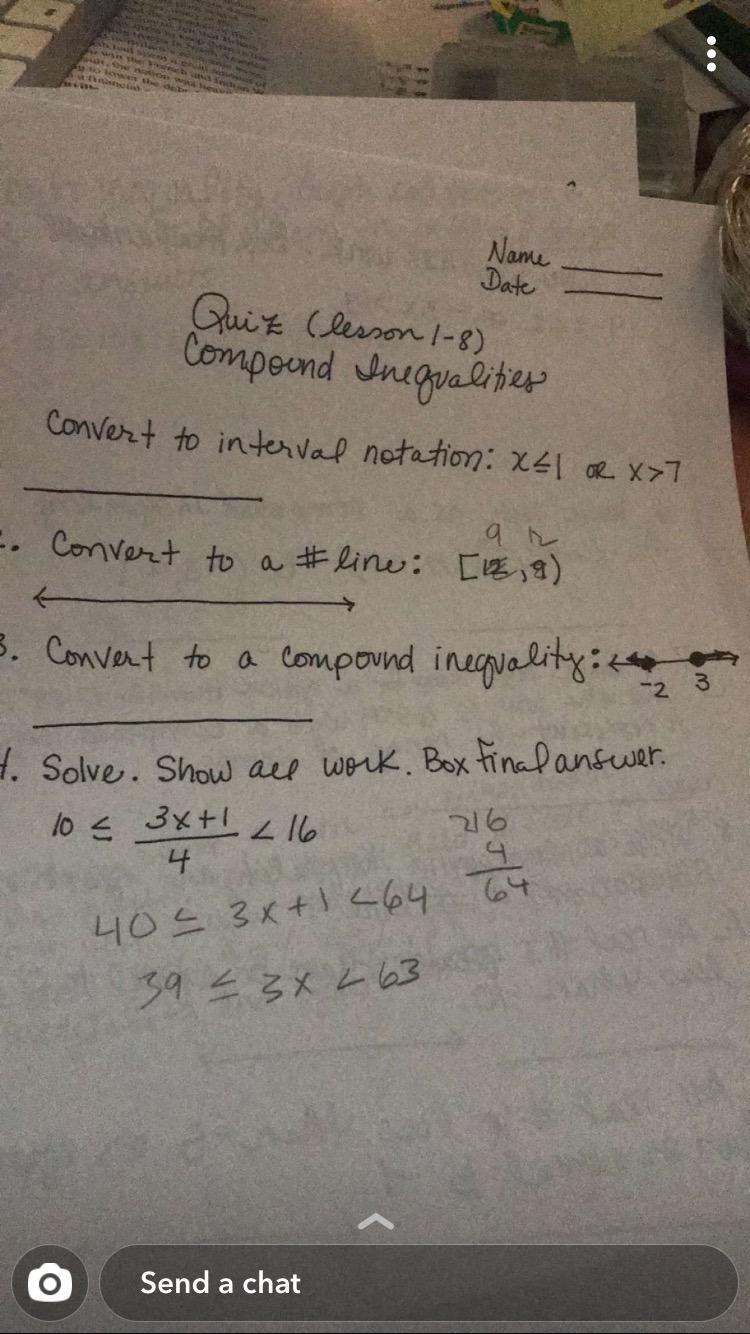 Name
Date
Quiz (lesson 1-8)
Compound Inequalities
Convert to interval notation: x≤1 or x>7
2. Convert to a # line: [12, 9)
9 12
3. Convert to a compound inequality:
-2 3
4. Solve. Show all work. Box final answer.
10 ≤ 3x+1 / 4 < 16
216
4
64
40 ≤ 3x+1 <64
39 ≤ 3x < 63
Send a chat